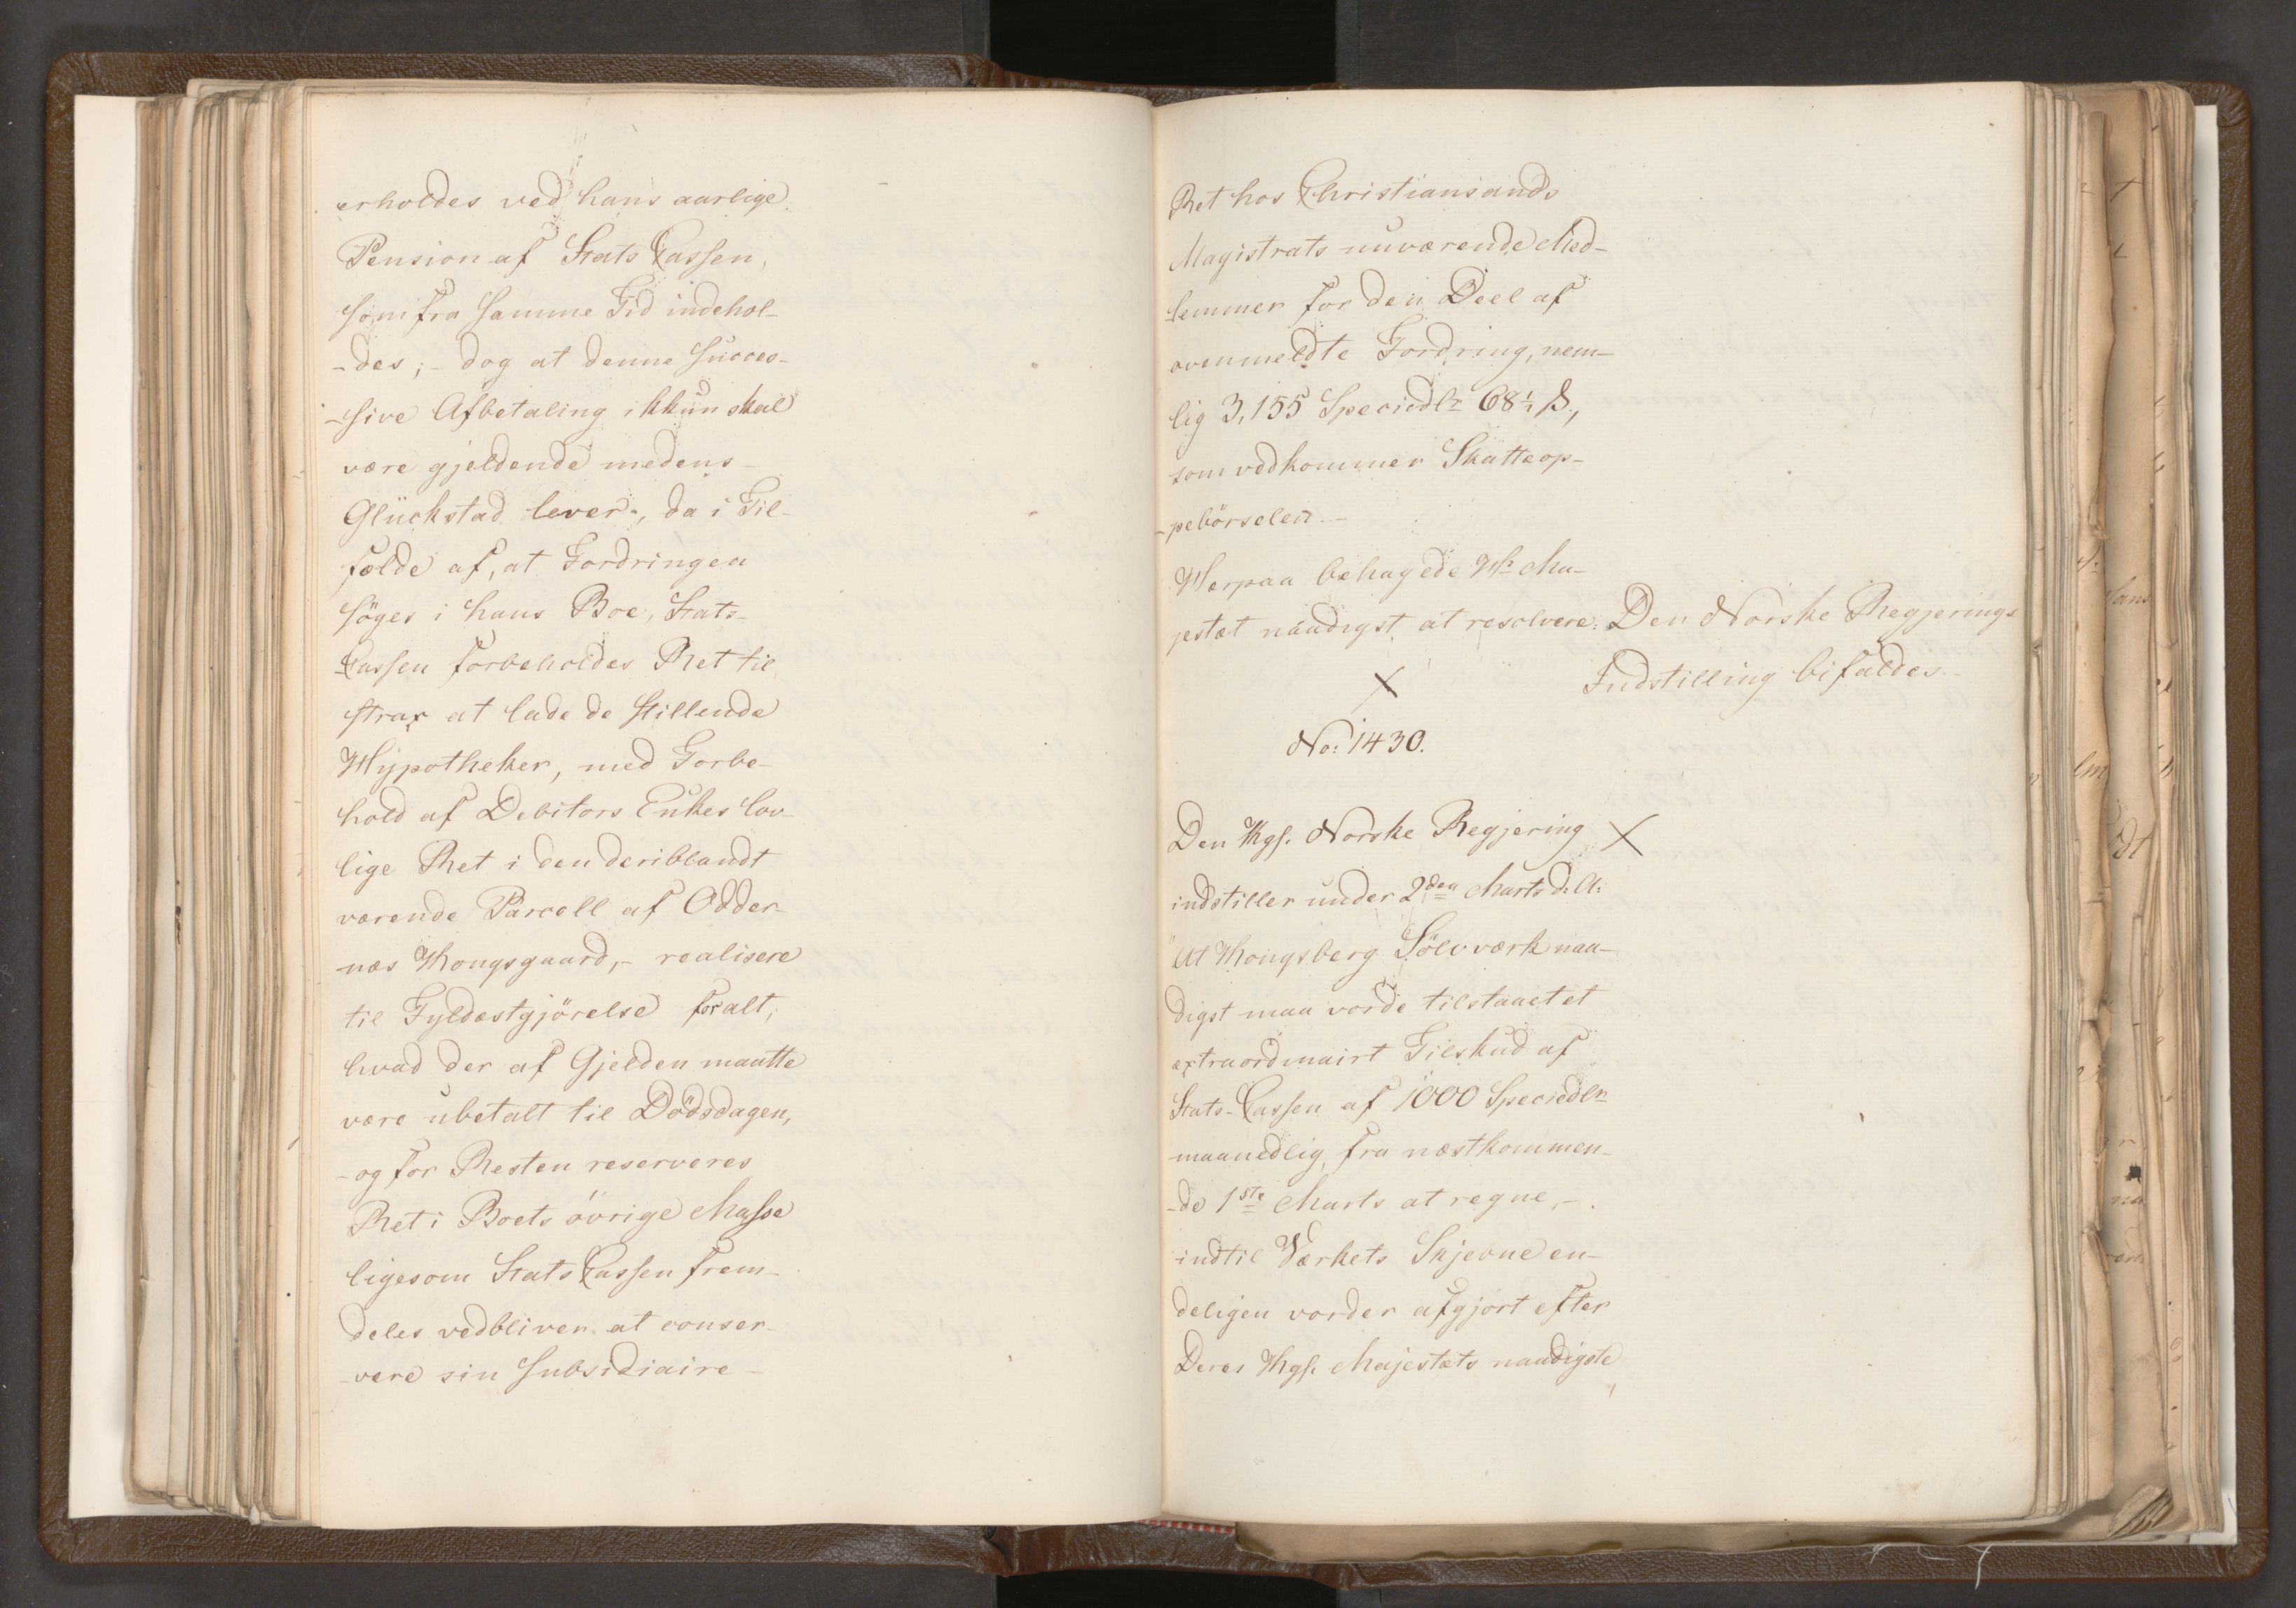 erholdes ved hans aarlige
Pension af Stats Cassen,
som fra samme Tid indehol-
-des; - dog at denne succes-
-sive Afbetaling ikkun skal
være gjeldende medens
Glückstad lever, da i Til-
fælde af, at Fordringen
söges i hans Boe, Stats-
Cassen forbeholdes Ret til
strax at lade de stillende
Hypotheker, med Forbe-
hold af Debitors Enkes lov-
lige Ret i den deriblandt
værende Parcell af Odder-
næs Kongsgaard, - realisere
til Fyldestgjörelse for alt,
hvad der af Gjelden maatte
være ubetalt til Dödsdagen,
- og for Resten reserveres
Ret i Boets övrige Masse
ligesom Stats Cassen frem-
deles vedbliver at conser-
-vere sin subsidiaire -
Ret hos Christiansands
Magistrats nuværende Med-
lemmer for den Deel af
ovenmeldte Fordring, nem-
lig 3,155 Speciedlr 68½ ß.,
som vedkommer Skatteop-
-pebörselen. -
Herpaa behagede Hs Ma-
jestæt naadigst at resolvere: Den Norske Regjerings
Indstilling bifaldes. -
No: 1430.
Den Kgl. Norske Regjering
indstiller under 2den Marts d: A:
At Kongsberg Sölvværk naa-
digst maa vorde tilstaaet et
extraordinairt Tilskud af
Stats-Cassen af 1000 Speciedlr
maanedlig, fra næstkommen-
-de 1ste Marts at regne, -
indtil Værkets Skjebne en-
deligen vorder afgjort efter
Deres Kgl. Majestæts naadigste